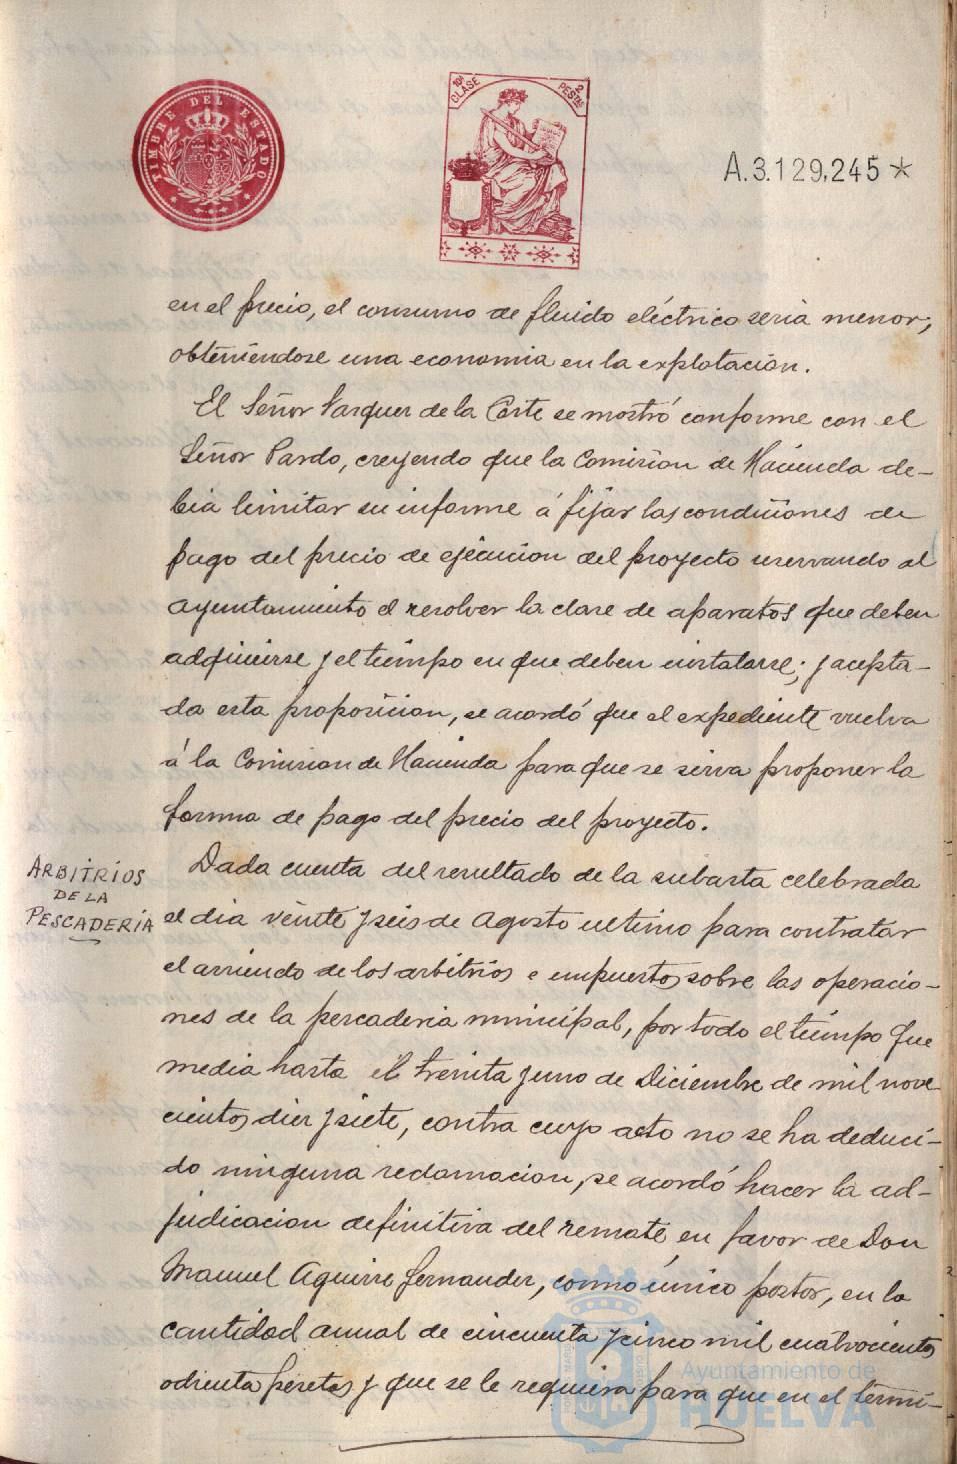 TIMBRE DEL ESTADO
10ª CLASE
2 PESTAS
A.3.129,245 *
en el precio, el consumo de fluido eléctrico seria menor,
obteniendose una economia en la explotación.
El Señor Vazquez de la Corte se mostró conforme con el
Señor Pardo, creyendo que la Comision de Hacienda de-
bia limitar su informe á fijar las condiciones de
pago del precio de ejecucion del proyecto reservando al
Ayuntamiento el resolver la clase de aparatos que deben
adquirirse y el tiempo en que deben instalarse; y acepta-
da esta proposicion, se acordó que el expediente vuelva
á la Comision de Hacienda para que se sirva proponer la
forma de pago del precio del proyecto.
ARBITRIOS
DE LA
PESCADERIA
Dada cuenta del resultado de la subasta celebrada
el dia veinte y seis de Agosto ultimo para contratar
el arriendo de los arbitrios e impuestos sobre las operacio-
nes de la pescaderia municipal, por todo el tiempo que
media hasta el treinta y uno de Diciembre de mil nove
cientos diez y siete, contra cuyo acto no se ha deduci-
do ninguna reclamacion, se acordó hacer la ad-
judicacion definitiva del remate en favor de Don
Manuel Aguirre Fernandez, como único postor, en la
cantidad anual de cincuenta y cinco mil cuatrocientas
ochenta pesetas y que se le requiera para que en el termi-
Ayuntamiento de
HUELVA